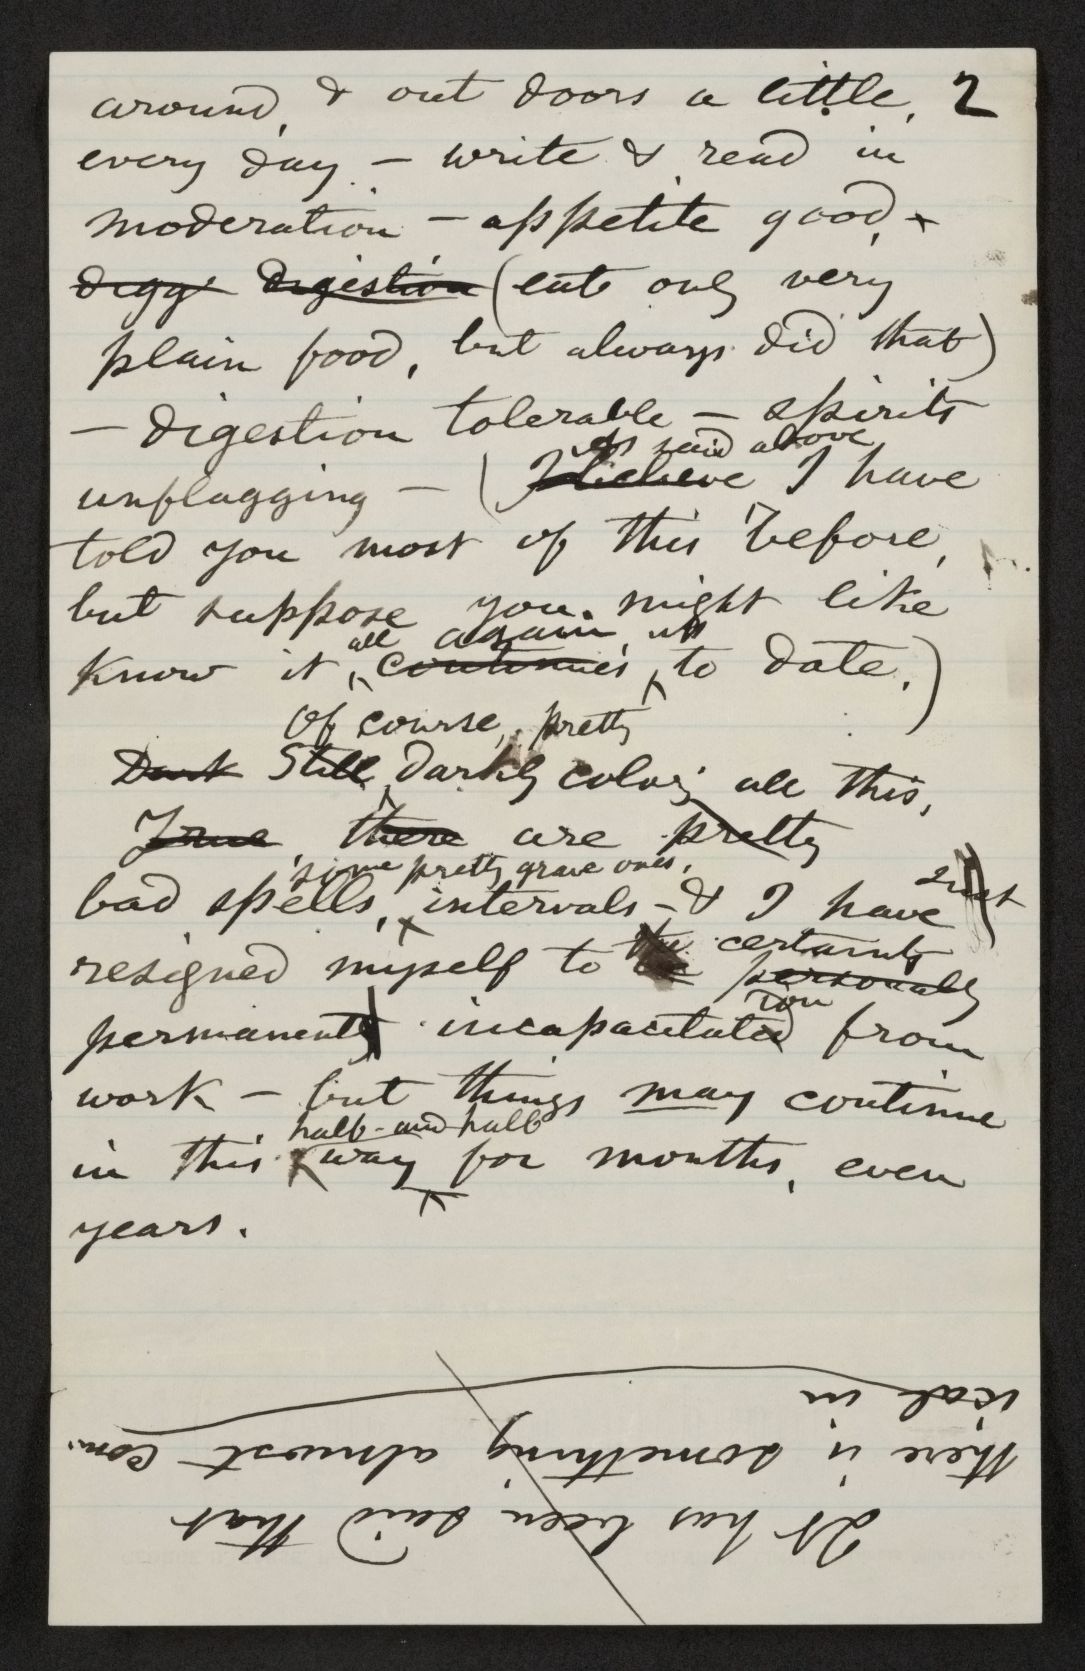 around, & out doors a little, 2
every day - write & read in
moderation - appetite good, &
digg digestion (eat only very
plain food, but always did that)
- digestion tolerable - spirits
as said above
unflagging - (I believe I have
told you most of this before,
but suppose you might like
all again up
know it, continues to date.)
of course, pretty
Dark Still, darkly coloring all this,
True there are pretty
some pretty grave ones,
bad spells, intervals - & I have just
the certainty
resigned myself to personally
tion
permanently incapacitated from
work - but things may continue
half-and-half
in this way for months, even
years.
It has been said that
there is something almost com-
ical in